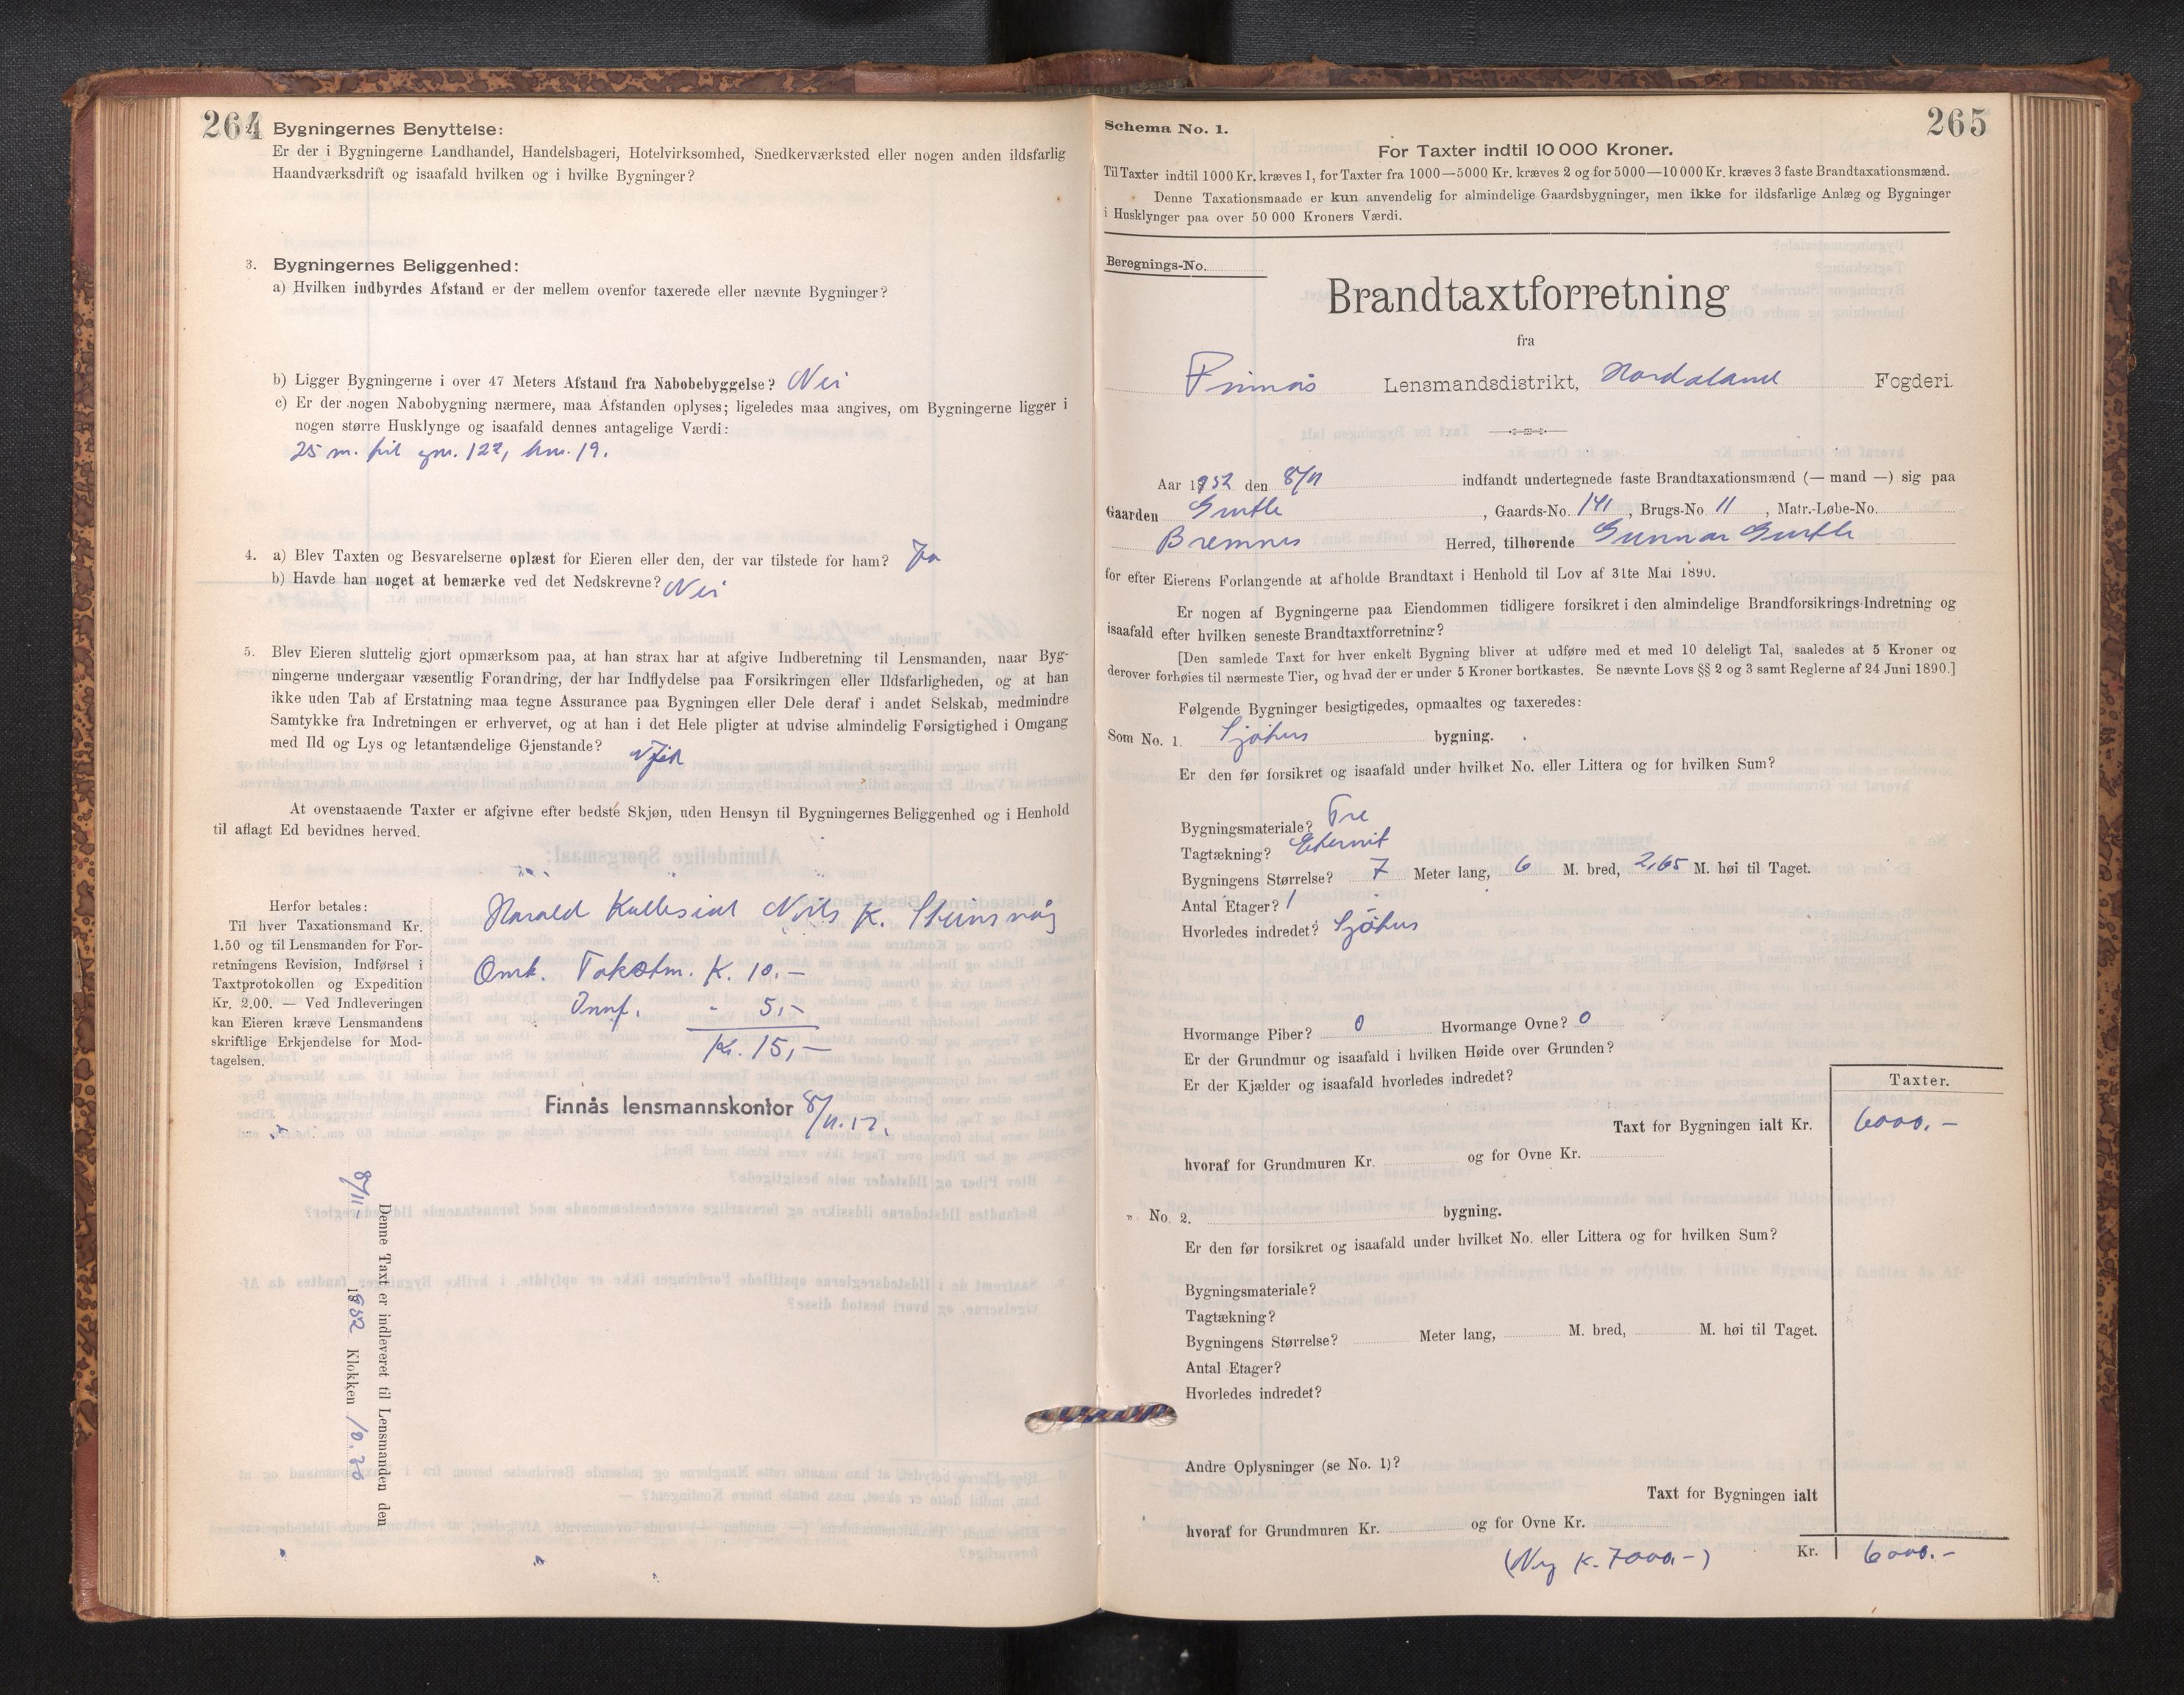 264
Bygningernes Benyttelse:
Er der i Bygningerne Landhandel, Handelsbageri, Hotelvirksomhed, Snedkerværksted eller nogen anden ildsfarlig
Haandværksdrift og isaafald hvilken og i hvilke Bygninger?
3. Bygningernes Beliggenhed:
a) Hvilken indbyrdes Afstand er der mellem ovenfor taxerede eller nævnte Bygninger?
b) Ligger Bygningerne i over 47 Meters Afstand fra Nabobebyggelse? Nei
c) Er der nogen Nabobygning nærmere, maa Afstanden oplyses; ligeledes maa angives, om Bygningerne ligger i
nogen større Husklynge og isaafald dennes antagelige Værdi:
25 m. til gnr. 122, bnr. 19.
4. a) Blev Taxten og Besvarelserne oplæst for Eieren eller den, der var tilstede for ham? Ja
b) Havde han noget at bemærke ved det Nedskrevne? Nei
5. Blev Eieren sluttelig gjort opmærksom paa, at han strax har at afgive Indberetning til Lensmanden, naar Byg-
ningerne undergaar væsentlig Forandring, der har Indflydelse paa Forsikringen eller Ildsfarligheden, og at han
ikke uden Tab af Erstatning maa tegne Assurance paa Bygningen eller Dele deraf i andet Selskab, medmindre
Samtykke fra Indretningen er erhvervet, og at han i det Hele pligter at udvise almindelig Forsigtighed i Omgang
med Ild og Lys og letantændelige Gjenstande?
At ovenstaaende Taxter er afgivne efter bedste Skjøn, uden Hensyn til Bygningernes Beliggenhed og i Henhold
til aflagt Ed bevidnes herved.
Harald Nils K.
Herfor betales:
Til hver Taxationsmand Kr.
1.50 og til Lensmanden for For-
retningens Revision, Indførsel i
Taxtprotokollen og Expedition
Kr. 2.00. — Ved Indleveringen
kan Eieren kræve Lensmandens
skriftlige Erkjendelse for Mod-
tagelsen.
Omk. Takstm. K. 10.-
Innf. " 5,-
Kr. 15,-
Finnås lensmannskontor 8/11.52.
Denne Taxt er indleveret til Lensmanden den
8/11- 1952 Klokken 10.30
265
Schema No. 1.
For Taxter indtil 10 000 Kroner.
Til Taxter indtil 1000 Kr. kræves 1, for Taxter fra 1000—5000 Kr. kræves 2 og for 5000—10 000 Kr. kræves 3 faste Brandtaxationsmænd.
Denne Taxationsmaade er kun anvendelig for almindelige Gaardsbygninger, men ikke for ildsfarlige Anlæg og Bygninger
i Husklynger paa over 50 000 Kroners Værdi.
Beregnings-No.
Brandtaxtforretning
fra
Finnås Lensmandsdistrikt, Hordaland Fogderi.
Aar 1952 den 8/11 indfandt undertegnede faste Brandtaxationsmænd (— mand —) sig paa
Gaarden Gurtle, Gaards-No. 141, Brugs-No 11, Matr.-Løbe-No.
Bremnes Herred, tilhørende Gunnar Gurtle
for efter Eierens Forlangende at afholde Brandtaxt i Henhold til Lov af 31te Mai 1890.
Er nogen af Bygningerne paa Eiendommen tidligere forsikret i den almindelige Brandforsikrings-Indretning og
isaafald efter hvilken seneste Brandtaxtforretning?
[Den samlede Taxt for hver enkelt Bygning bliver at udføre med et med 10 deleligt Tal, saaledes at 5 Kroner og
derover forhøies til nærmeste Tier, og hvad der er under 5 Kroner bortkastes. Se nævnte Lovs §§ 2 og 3 samt Reglerne af 24 Juni 1890.]
Følgende Bygninger besigtigedes, opmaaltes og taxeredes:
Som No. 1. Sjøhus bygning.
Er den før forsikret og isaafald under hvilket No. eller Littera og for hvilken Sum?
Bygningsmateriale? Tre
Tagtækning? Eternit
Bygningens Størrelse? 7 Meter lang, 6 M. bred, 2,65 M. høi til Taget.
Antal Etager? 1
Hvorledes indredet? Sjøhus
Hvormange Piber? 0 Hvormange Ovne? 0
Er der Grundmur og isaafald i hvilken Høide over Grunden?
Er der Kjælder og isaafald hvorledes indredet?
Taxter.
Taxt for Bygningen ialt Kr. 6000.-
hvoraf for Grundmuren Kr. og for Ovne Kr.
" No. 2. bygning.
Er den før forsikret og isaafald under hvilket No. eller Littera og for hvilken Sum?
Bygningsmateriale?
Tagtækning?
Bygningens Størrelse? Meter lang, M. bred, M. høi til Taget.
Antal Etager?
Hvorledes indredet?
Andre Oplysninger (se No. 1)?
Taxt for Bygningen ialt
hvoraf for Grundmuren Kr. og for Ovne Kr.
(Ny K. 7000,-) Kr. 6000.-